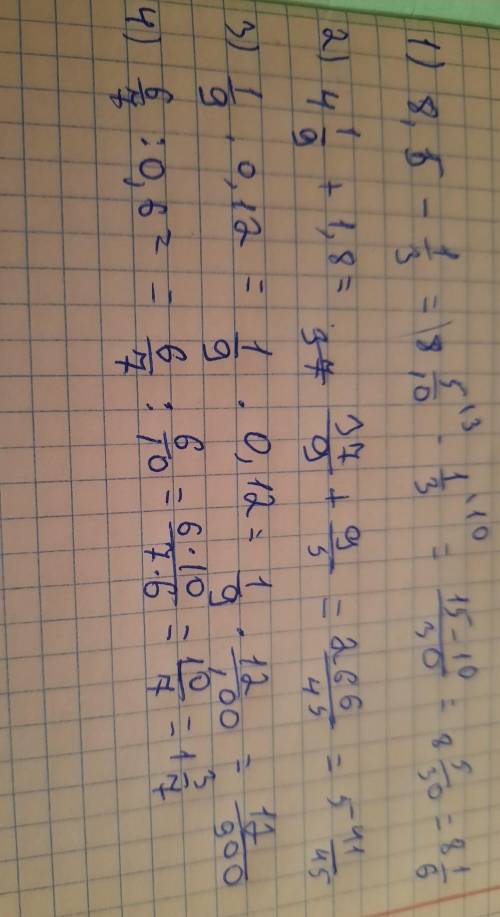 1) 8,5 - 1/3 = 8 5/10 ·3 - 1/3 ·10 = 15-10/30 = 8 5/30 = 8 1/6
2) 4 1/9 + 1,8 = 37/9 + 9/5 = 266/45 = 5 41/45
3) 1/9 · 0,12 = 1/9 · 0,12 = 1/9 · 12/100 = 12/900
4) 6/7 : 0,6 = = 6/7 : 6/10 = 6·10/7·6 = 10/7 = 1 3/7